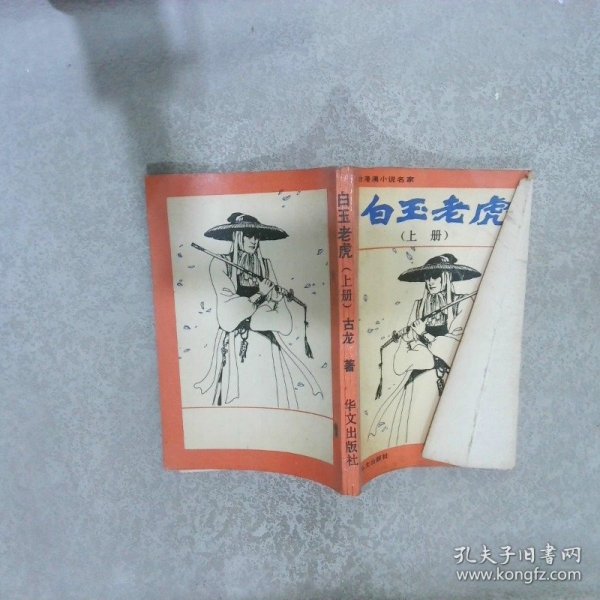 小说名家
白玉老虎
（上册）
白玉老虎（上册）古龙 著 华文出版社
文出版社
孔夫子旧书网
www.kongfz.com